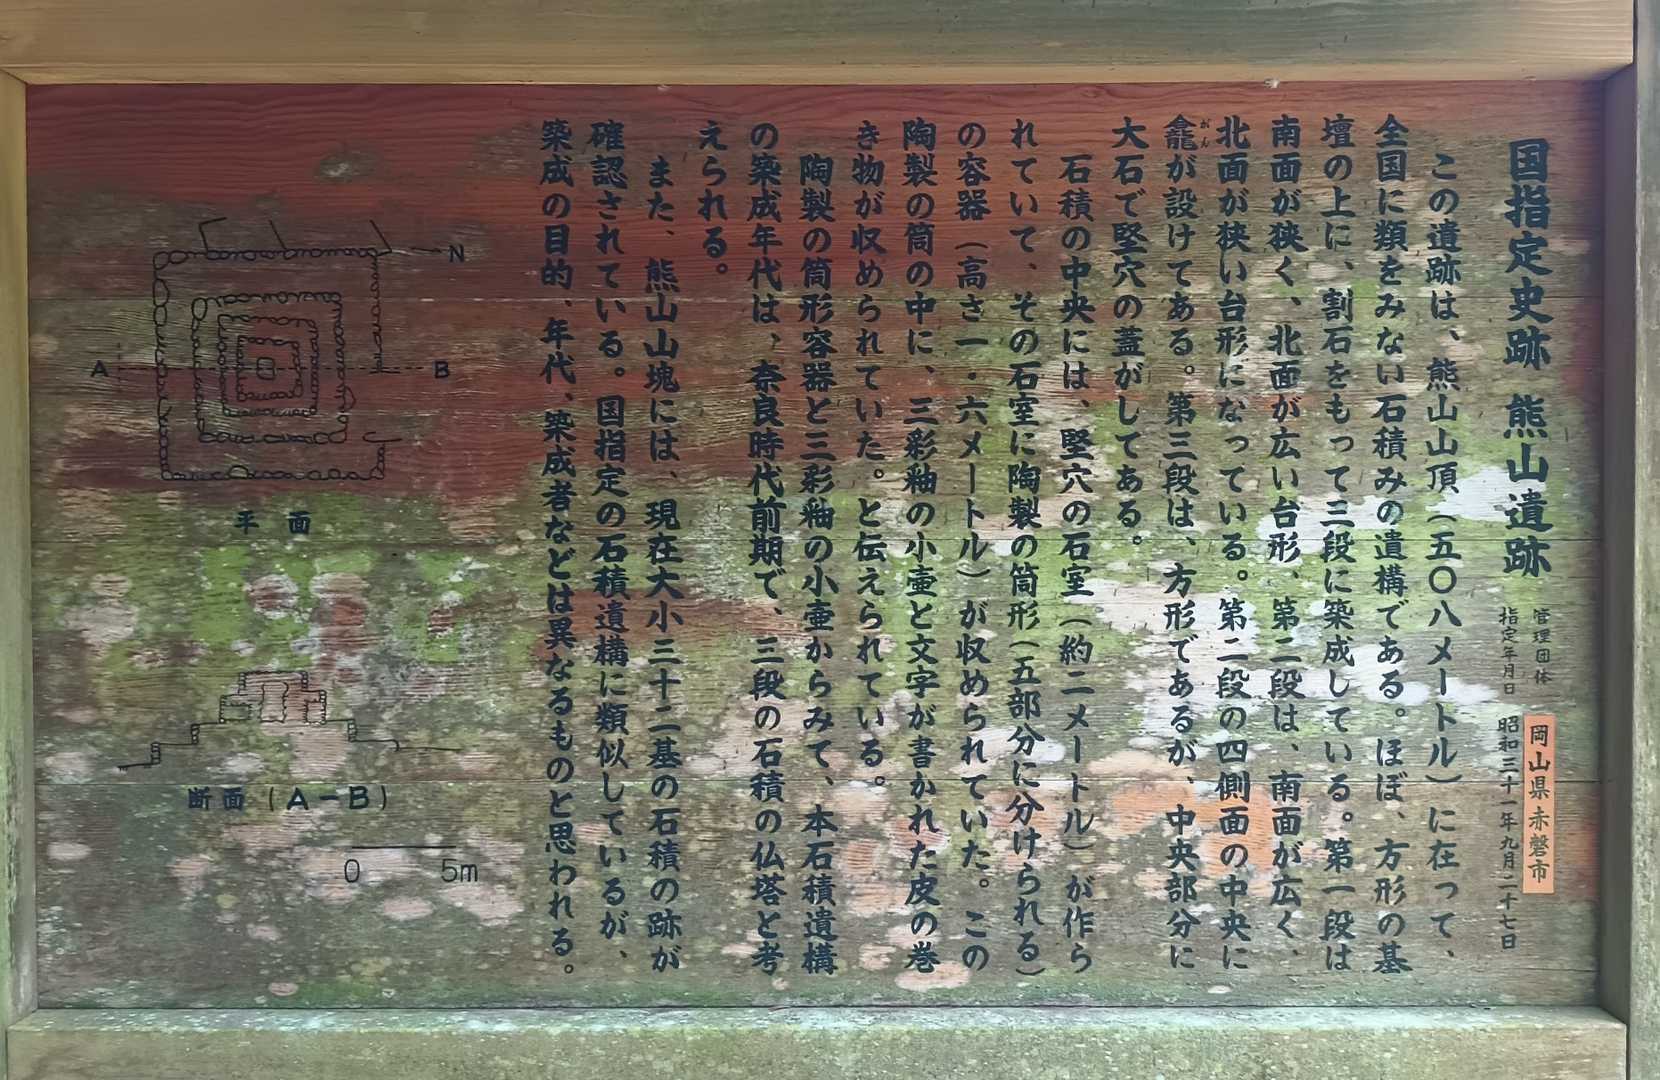 国指定史跡 熊山遺跡
管理団体 岡山県赤磐市
指定年月日 昭和三十一年九月二十七日
この遺跡は、熊山山頂(五〇八メートル)に在って、
全国に類をみない石積みの遺構である。ほぼ、方形の基
壇の上に、割石をもって三段に築成している。第一段は
南面が狭く、北面が広い台形、第二段は、南面が広く、
北面が狭い台形になっている。第二段の四側面の中央に
龕が設けてある。第三段は、方形であるが、中央部分に
がん
大石で竪穴の蓋がしてある。
石積の中央には、竪穴の石室(約二メートル)が作ら
れていて、その石室に陶製の筒形(五部分に分けられる)
の容器(高さ一・六メートル)が収められていた。この
陶製の筒の中に、三彩釉の小壷と文字が書かれた皮の巻
き物が収められていた。と伝えられている。
陶製の筒形容器と三彩釉の小壷からみて、本石積遺構
の築成年代は、奈良時代前期で、三段の石積の仏塔と考
えられる。
また、熊山山塊には、現在大小三十二基の石積の跡が
確認されている。国指定の石積遺構に類似しているが、
築成の目的、年代、築成者などは異なるものと思われる。
N
A
B
平面
断面(A-B)
0 5m